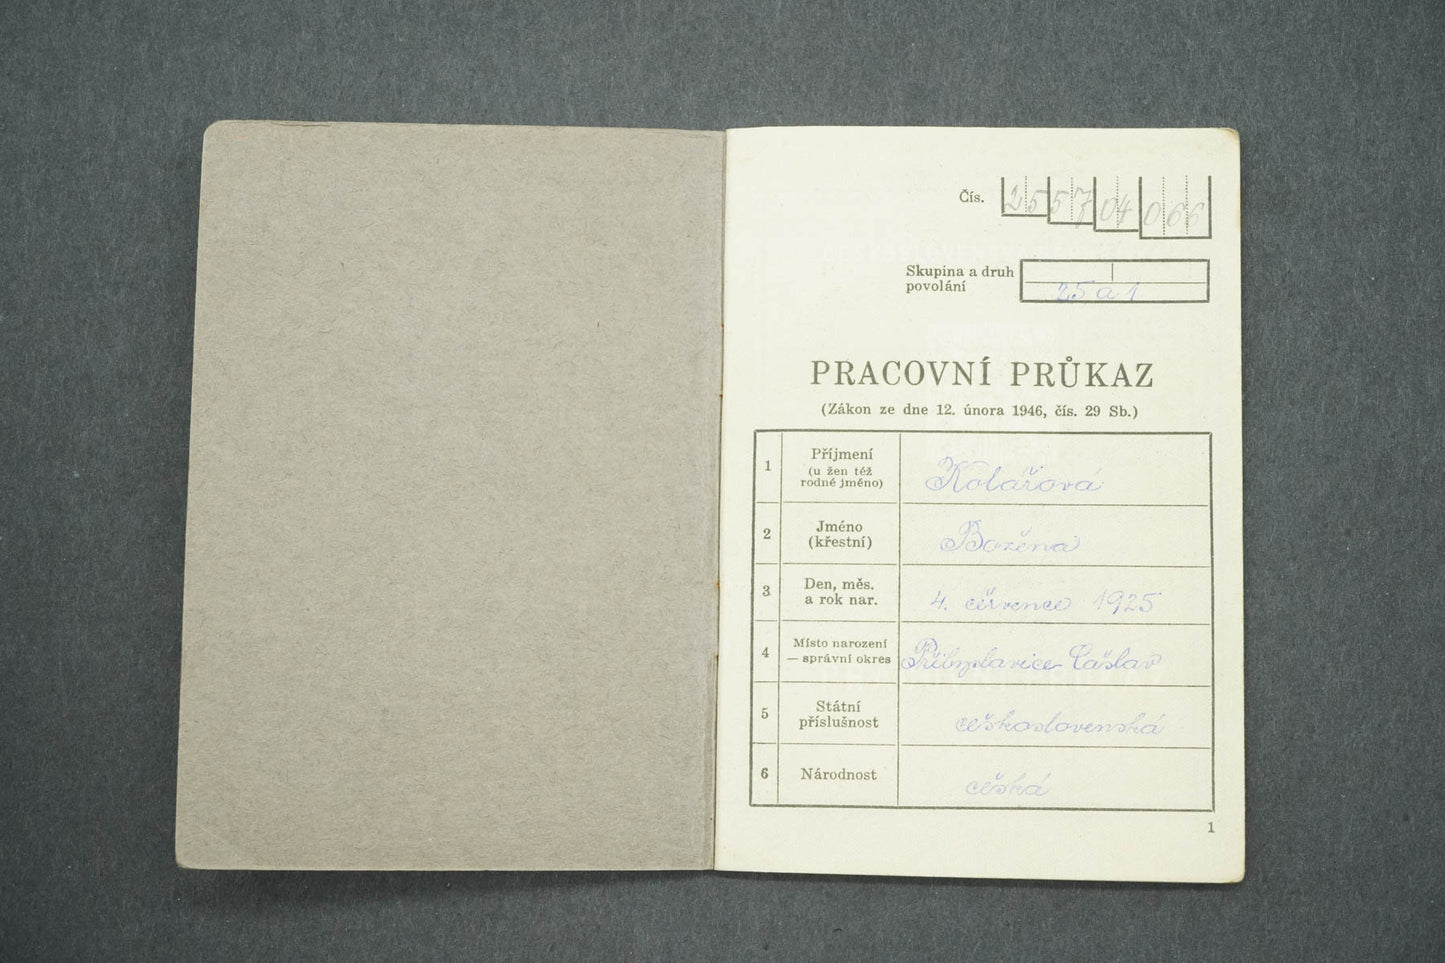 Čís. 2557 04 066
Skupina a druh
povolání
25 a 1
PRACOVNÍ PRŮKAZ
(Zákon ze dne 12. února 1946, čís. 29 Sb.)
1 Příjmení
(u žen též
rodné jméno)
Kolářová
2 Jméno
(křestní)
Božena
3 Den, měs.
a rok nar.
4. července 1925
4 Místo narození
— správní okres
Přibyslavice Čáslav
5 Státní
příslušnost
československá
6 Národnost
česká
1